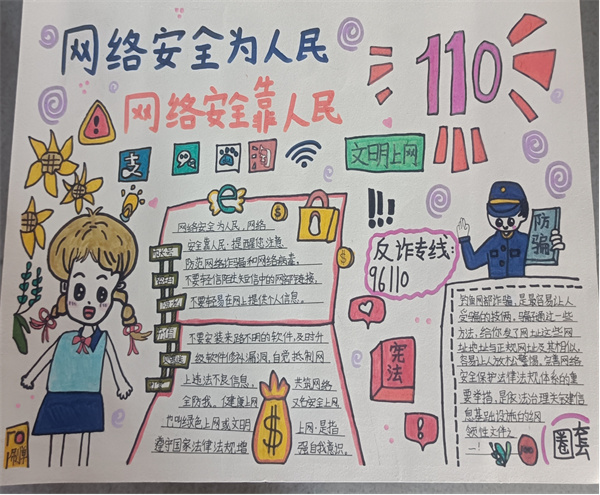 网络安全为人民
网络安全靠人民
110
支
淘
文明上网
反诈专线:
96110
防骗
网络安全为人民,网络
安全靠人民·提醒您注意
防范网络诈骗和网络病毒。
不要轻信陌生短信中的网络链接,
不要轻易在网上提供个人信息。
不要安装来路不明的软件,及时升
级软件修补漏洞,自觉抵制网
上违法不良信息。共筑网络
全防线。健康上网 文明安全上网
绿色上网或文明上网·是指
遵守国家法律法规增强自我意识。
$
宪法
钓鱼网站诈骗,是最容易让人
受骗的技俩,骗子通过一些
方法,给你发了网址这些网
址地址与正规网址及其相似。
容易让人放松警惕,
安全保护法律法规体系的重
要举措,是依法治理关键信
息基础设施的
领性文件之
一!
圈套